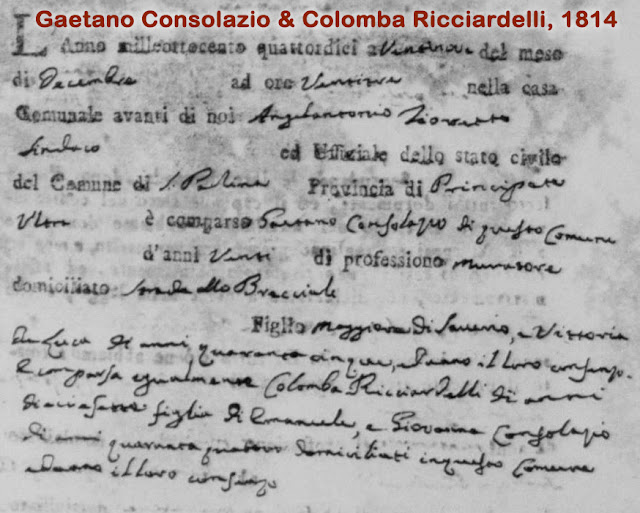 Gaetano Consolazio & Colomba Ricciardelli, 1814
L'Anno milleottocento quattordici a ventinove del mese
di Decembre ad ore ventitre nella casa
Comunale avanti di noi Angelantonio
Sindaco ed Uffiziale dello stato civile
del Comune di S. Paolina Provincia di Principato
Ultra è comparso Gaetano Consolazio di questo Comune
d'anni venti di professione muratore
domiciliato strada allo Bracciale
Figlio maggiore di Saverio, e Vittoria
de Luca di anni quaranta cinque, e danno il loro consenzo.
E comparsa egualmente Colomba Ricciardelli di anni
diciasette figlia di Emanuele, e Giovanna Consolazio
di anni quaranta quattro domiciliati in questo Comune
e danno il loro consenzo